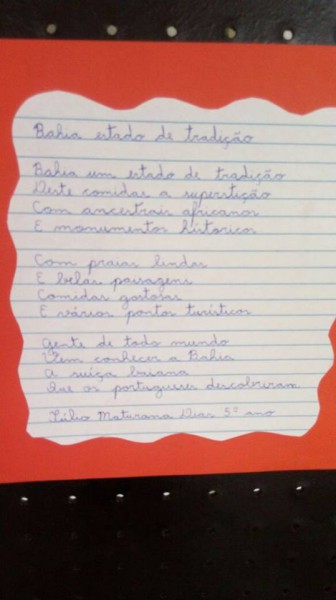 Bahia estado de tradição
Bahia um estado de tradição
Deste comidas a superstição
Com ancestrais africanos
E monumentos historicos
Com praias lindas
E belas paisagens
Comidas gostosas
E vários pontos turísticos
Gente de todo mundo
Vem conhecer a Bahia
A suíça baiana
Que os portugueses descobriram
Júlio Maturana Dias 5º ano